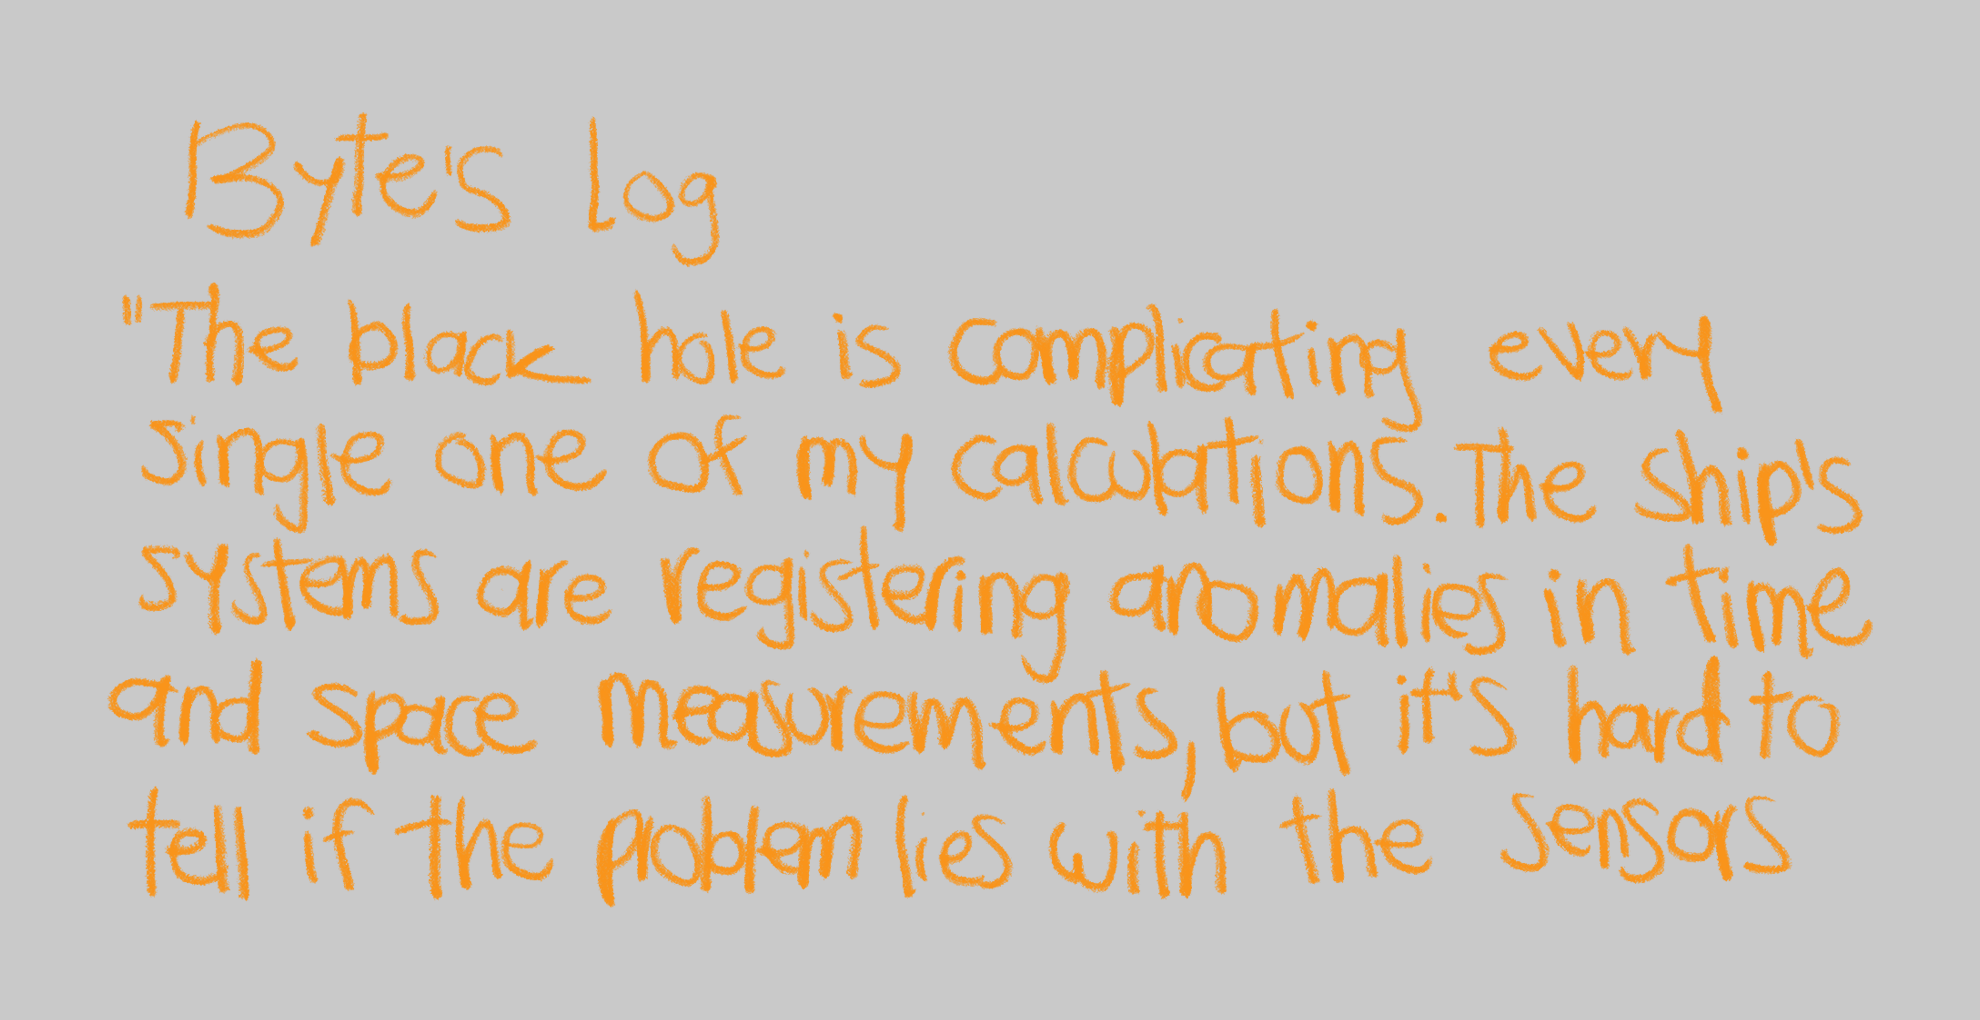 Byte's log
"The black hole is complicating every
single one of my calculations. The ship's
systems are registering anomalies in time
and space measurements, but it's hard to
tell if the problem lies with the sensors